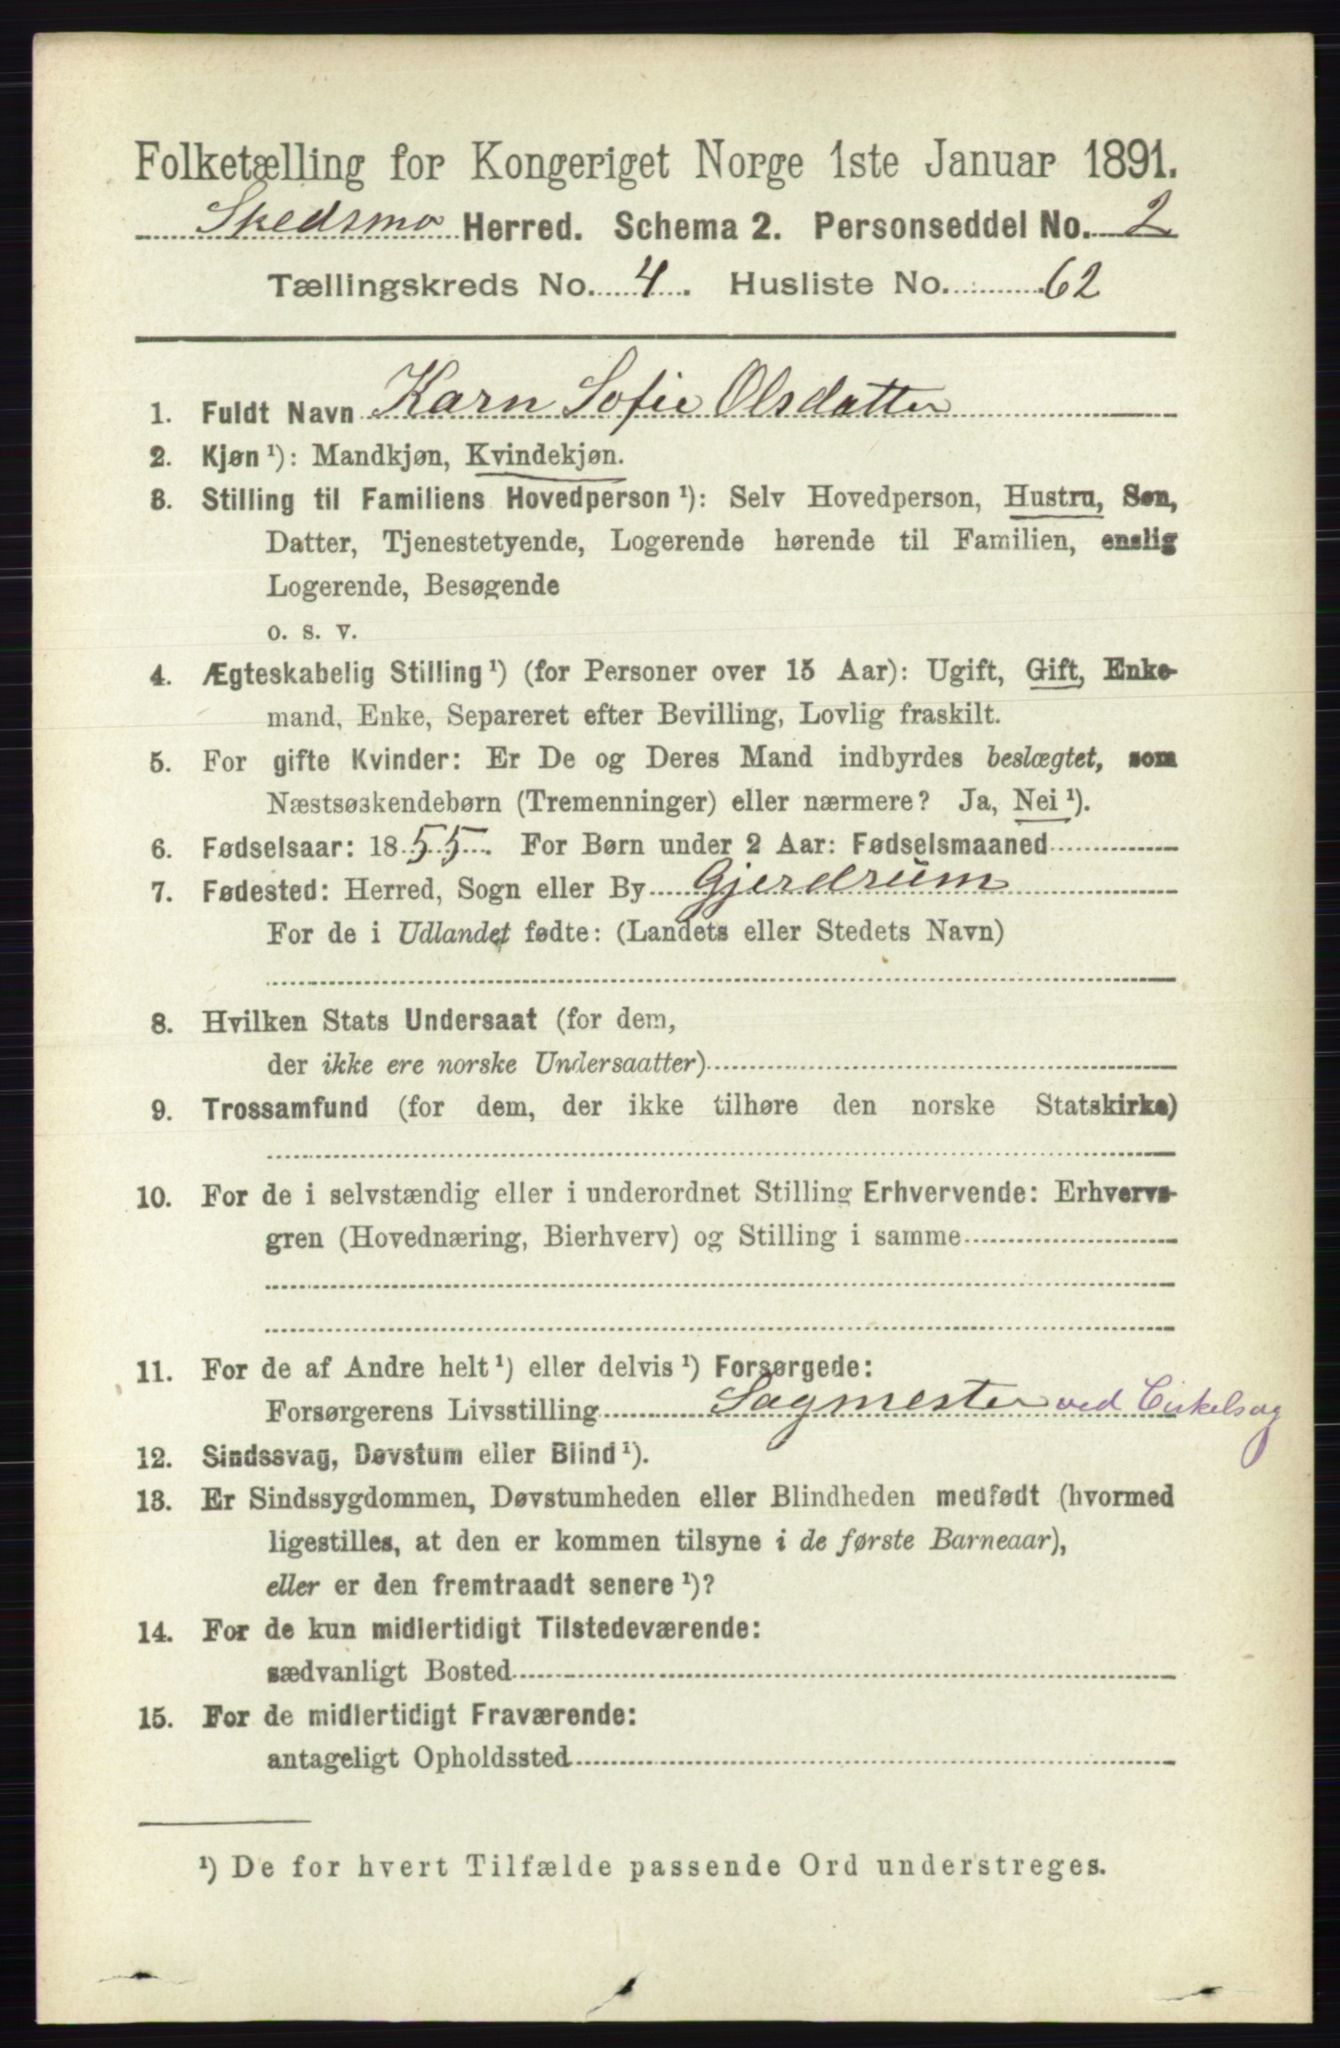 Folketælling for Kongeriget Norge 1ste Januar 1891.
Skedsmo Herred. Schema 2. Personseddel No. 2
Tællingskreds No. 4. Husliste No. 62
1. Fuldt Navn Karn Sofie Olsdatter
2. Kjøn ¹): Mandkjøn, Kvindekjøn.
3. Stilling til Familiens Hovedperson ¹): Selv Hovedperson, Hustru, Søn,
Datter, Tjenestetyende, Logerende hørende til Familien, enslig
Logerende, Besøgende
o. s. v.
4. Ægteskabelig Stilling ¹) (for Personer over 15 Aar): Ugift, Gift, Enke-
mand, Enke, Separeret efter Bevilling, Lovlig fraskilt.
5. For gifte Kvinder: Er De og Deres Mand indbyrdes beslægtet, som
Næstsøskendebørn (Tremenninger) eller nærmere? Ja, Nei ¹).
6. Fødselsaar: 1855. For Børn under 2 Aar: Fødselsmaaned
7. Fødested: Herred, Sogn eller By Gjerdrum
For de i Udlandet fødte: (Landets eller Stedets Navn)
8. Hvilken Stats Undersaat (for dem,
der ikke ere norske Undersaatter)
9. Trossamfund (for dem, der ikke tilhøre den norske Statskirke)
10. For de i selvstændig eller i underordnet Stilling Erhvervende: Erhvervs-
gren (Hovednæring, Bierhverv) og Stilling i samme
11. For de af Andre helt ¹) eller delvis ¹) Forsørgede:
Forsørgerens Livsstilling Sagmester ved Cirkelsag
12. Sindssvag, Døvstum eller Blind ¹).
13. Er Sindssygdommen, Døvstumheden eller Blindheden medfødt (hvormed
ligestilles, at den er kommen tilsyne i de første Barneaar),
eller er den fremtraadt senere ¹)?
14. For de kun midlertidigt Tilstedeværende:
sædvanligt Bosted
15. For de midlertidigt Fraværende:
antageligt Opholdssted
¹) De for hvert Tilfælde passende Ord understreges.